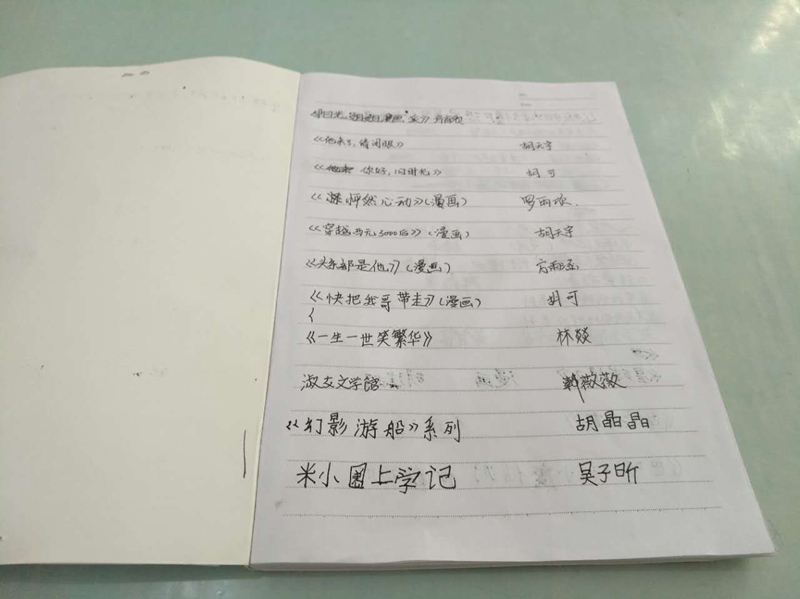 《他来了,请闭眼》 胡天宇
《你好,旧时光》 胡可
《怦然心动》(漫画) 罗雨欣.
《穿越公元3000后》(漫画) 胡天宇
《头条都是他》(漫画)
《快把我哥带走》(漫画) 胡可
《一生一世笑繁华》 林燚
淑女文学馆 薇薇
《幻影游船》系列 胡晶晶
米小圈上学记 吴子昕